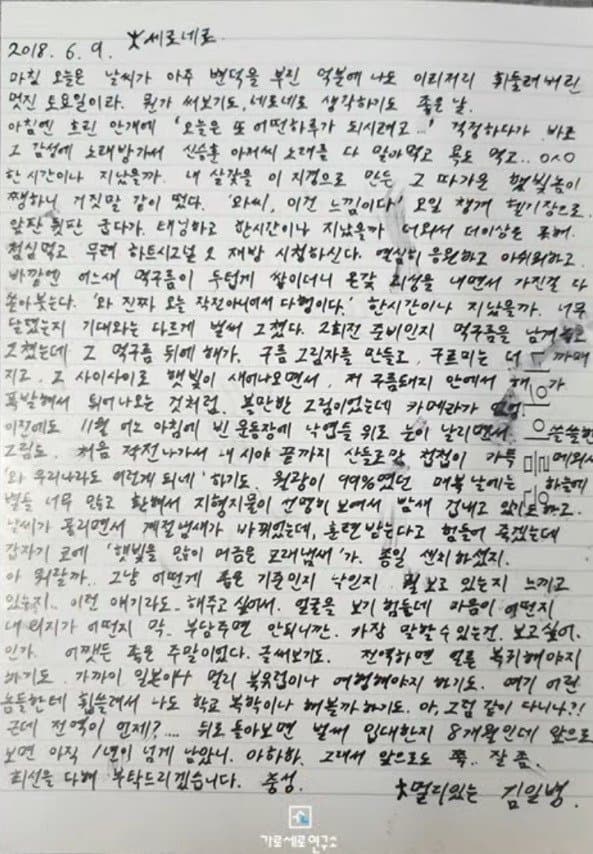 2018. 6. 9. 大세로네로
마침 오늘은 날씨가 아주 변덕을 부린 덕분에 나도 이리저리 휘둘려버린
멋진 토요일이라. 뭔가 써보기도, 세로네로 생각하기도 좋은 날.
아침엔 흐린 안개에 '오늘은 또 어떤하루가 되시려고...' 걱정하다가 바로
그 감성에 노래방가서 신승훈 아저씨 노래를 다 말아먹고 욕도 먹고.. ㅇㅅㅇ
한 시간이나 지났을까. 내 살갗을 이 지경으로 만든 그 따가운 햇빛놈이
쨍하니 거짓말 같이 떴다. '와씨, 이건 느낌이다' 오일 챙겨 헬기장으로.
앞판 뒷판 굽다가. 태닝하고 한시간이나 지났을까 더워서 더이상은 못해.
점심먹고 무려 하트시그널 2 재방 시청하신다. 열심히 응원하고 아쉬워하고.
바깥엔 어느새 먹구름이 두텁게 쌓이더니 온갖 괴성을 내면서 가진걸 다
쏟아붓는다. '와 진짜 오늘 작전아니어서 다행이다.' 한시간이나 지났을까. 너무
달랬는지 기대와는 다르게 벌써 그쳤다. 2회전 준비인지 먹구름을 남겨놓고
그쳤는데 그 먹구름 뒤에 해가. 구름 그림자를 만들고, 구르미는 더 까매
지고. 그 사이사이로 햇빛이 새어나오면서, 저 구름돼지 안에서 해가
폭발해서 튀어나오는 것처럼. 볼만한 그림이었는데 카메라가 없네
이전에도 11월 어느 아침에 빈 운동장에 낙엽들 위로 눈이 날리면서 쓸쓸한
그림도. 처음 작전나가서 내 시야 끝까지 산들로만 첩첩이 가득 메워서
'와 우리나라도 이렇게 되네' 하기도. 월광이 99%였던 매복 날에는 하늘에
별들 너무 많고 환해서 지형지물이 선명히 보여서 밤새 겁내고 있기도하고.
날씨가 풀리면서 계절냄새가 바뀌었는데, 훈련받는다고 힘들어 죽겠는데
갑자기 코에 '햇빛을 많이 머금은 모래냄새'가. 종일 센치하셨지.
아 뭐랄까.. 그냥 어떻게 좁은 기준인지 낙인지 뭘 보고 있는지 느끼고
있는지.. 이런 얘기라도.. 해주고 싶어서. 얼굴을 보기 힘들데 마음이 어떤지
내 의지가 어떤지 막.. 부담주면 안되니깐. 가장 말할수 있는건. 보고싶어.
인가. 어쨌든 좋은 주말이었다. 글써보기도. 전역하면 얼른 복귀해야지
하기도. 가까이 일본이나 멀리 북유럽이나 여행해야지 하기도. 여기 어린
놈들한테 휩쓸려서 나도 학교 복학이나 해볼까하기도. 아, 그럼 같이 다니나?!
근데 전역이 언제?.... 뒤로 돌아보면 벌써 입대한지 8개월인데 앞으로
보면 아직 1년이 넘게 남았니. 아하하. 그래서 앞으로도 쭉.. 잘 좀.
최선을 다해 부탁드리겠습니다. 충성.
大멀리있는 김일병.
가로세로연구소